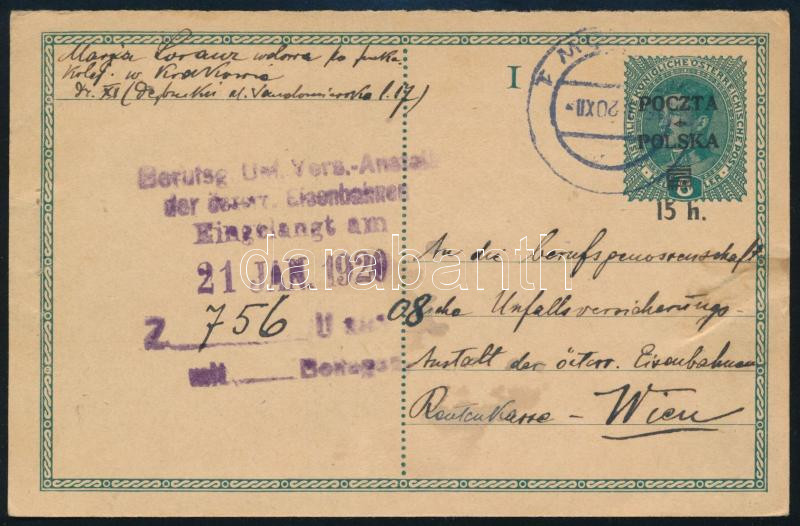 Marja Loranz wdowa po funkc.
kolej. w Krakowie
dz. XI (Dębniki ul. Sandomierska l. 17)
I
POCZTA
POLSKA
8
15 h.
20 XII
Berufsg. Unf. Vers.-Anstalt
der österr. Eisenbahnen
Eingelangt am
21 JAN. 1920
Z 756 U
mit Beilagen
08
An die berufsgenossenschaft
liche Unfallsversicherungs-
Anstalt der österr. Eisenbahnen
Rentenkasse – Wien
darabanth